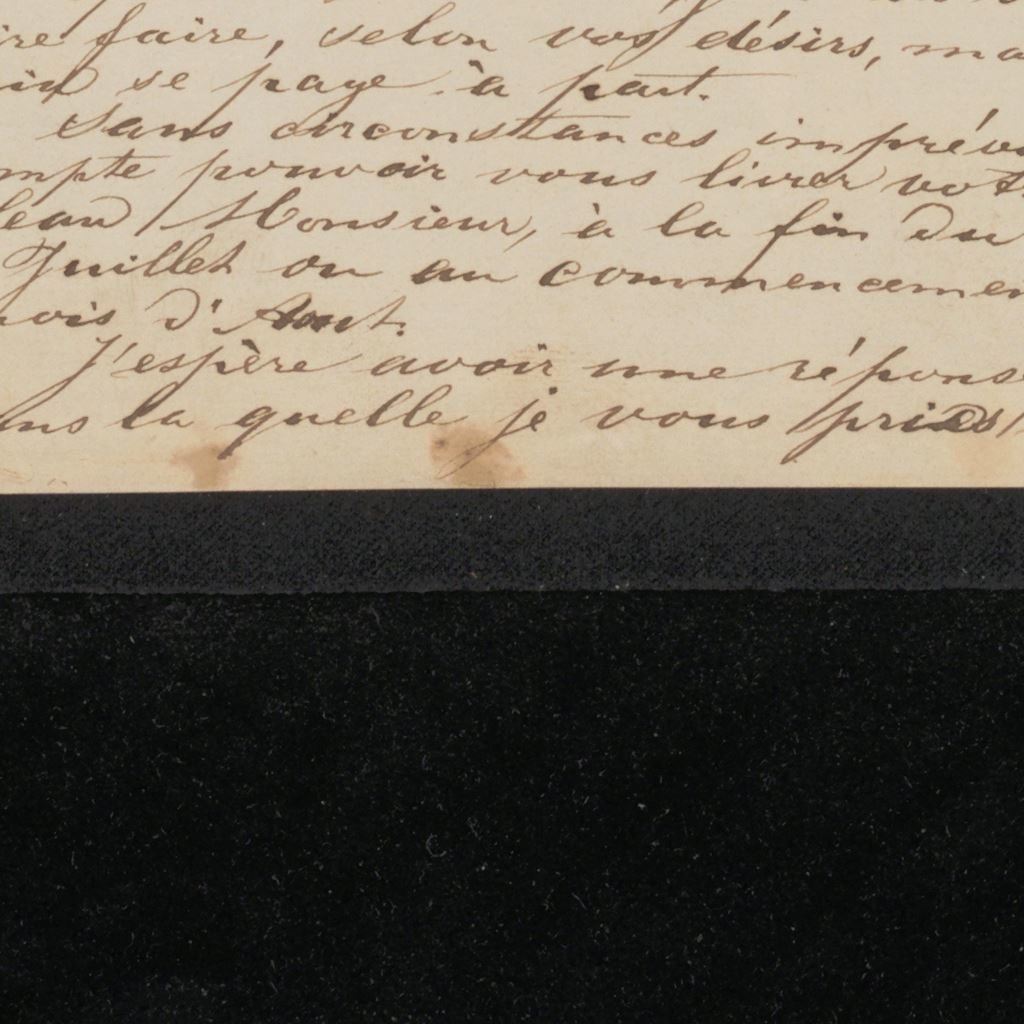 ire faire, selon vos désirs, ma
se paye à part.
Sans circonstances imprévu
mpte pouvoir vous livrer vot
leau Monsieur, à la fin du
Juillet ou au commencemen
ois d'Aout.
J'espère avoir une répons
ns la quelle je vous pries